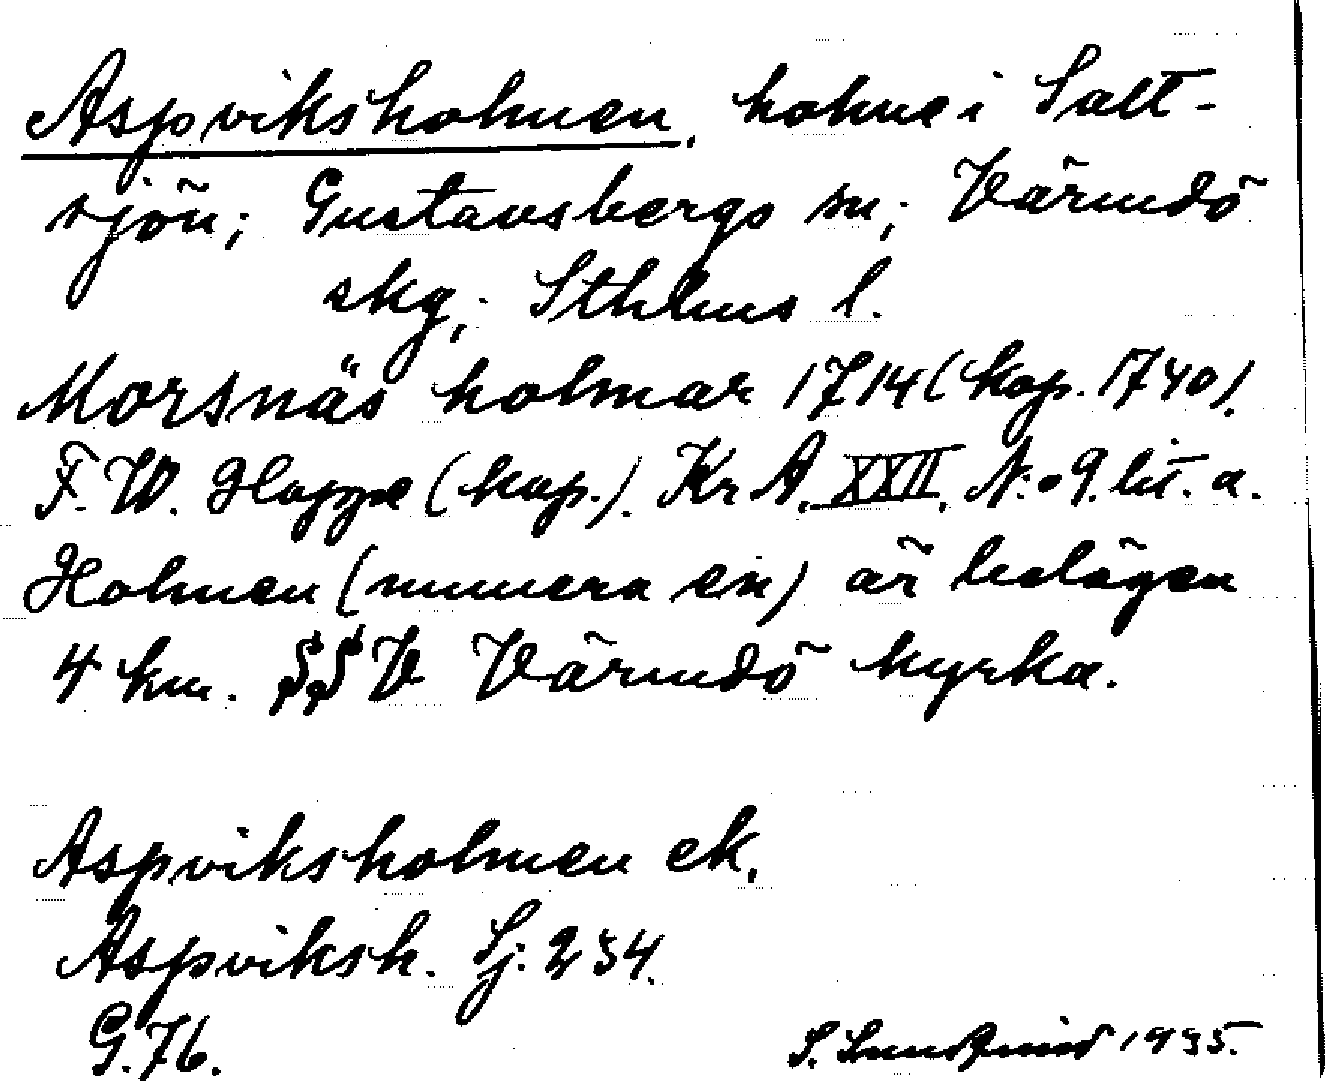 Aspviksholmen, holme i Salt-
sjön; Gustavsbergs sn; Värmdö
skg; Sthlms l.
Morsnäs holmar 1714 (kop. 1740).
F. W. Hoppe (kop.). Kr A. XXII, N:o 9. lit. a.
Holmen (numera en) är belägen
4 km. SSV Värmdö kyrka.
Aspviksholmen ek.
Aspviksh. Sj. 234.
G. 76.
S. 1935.